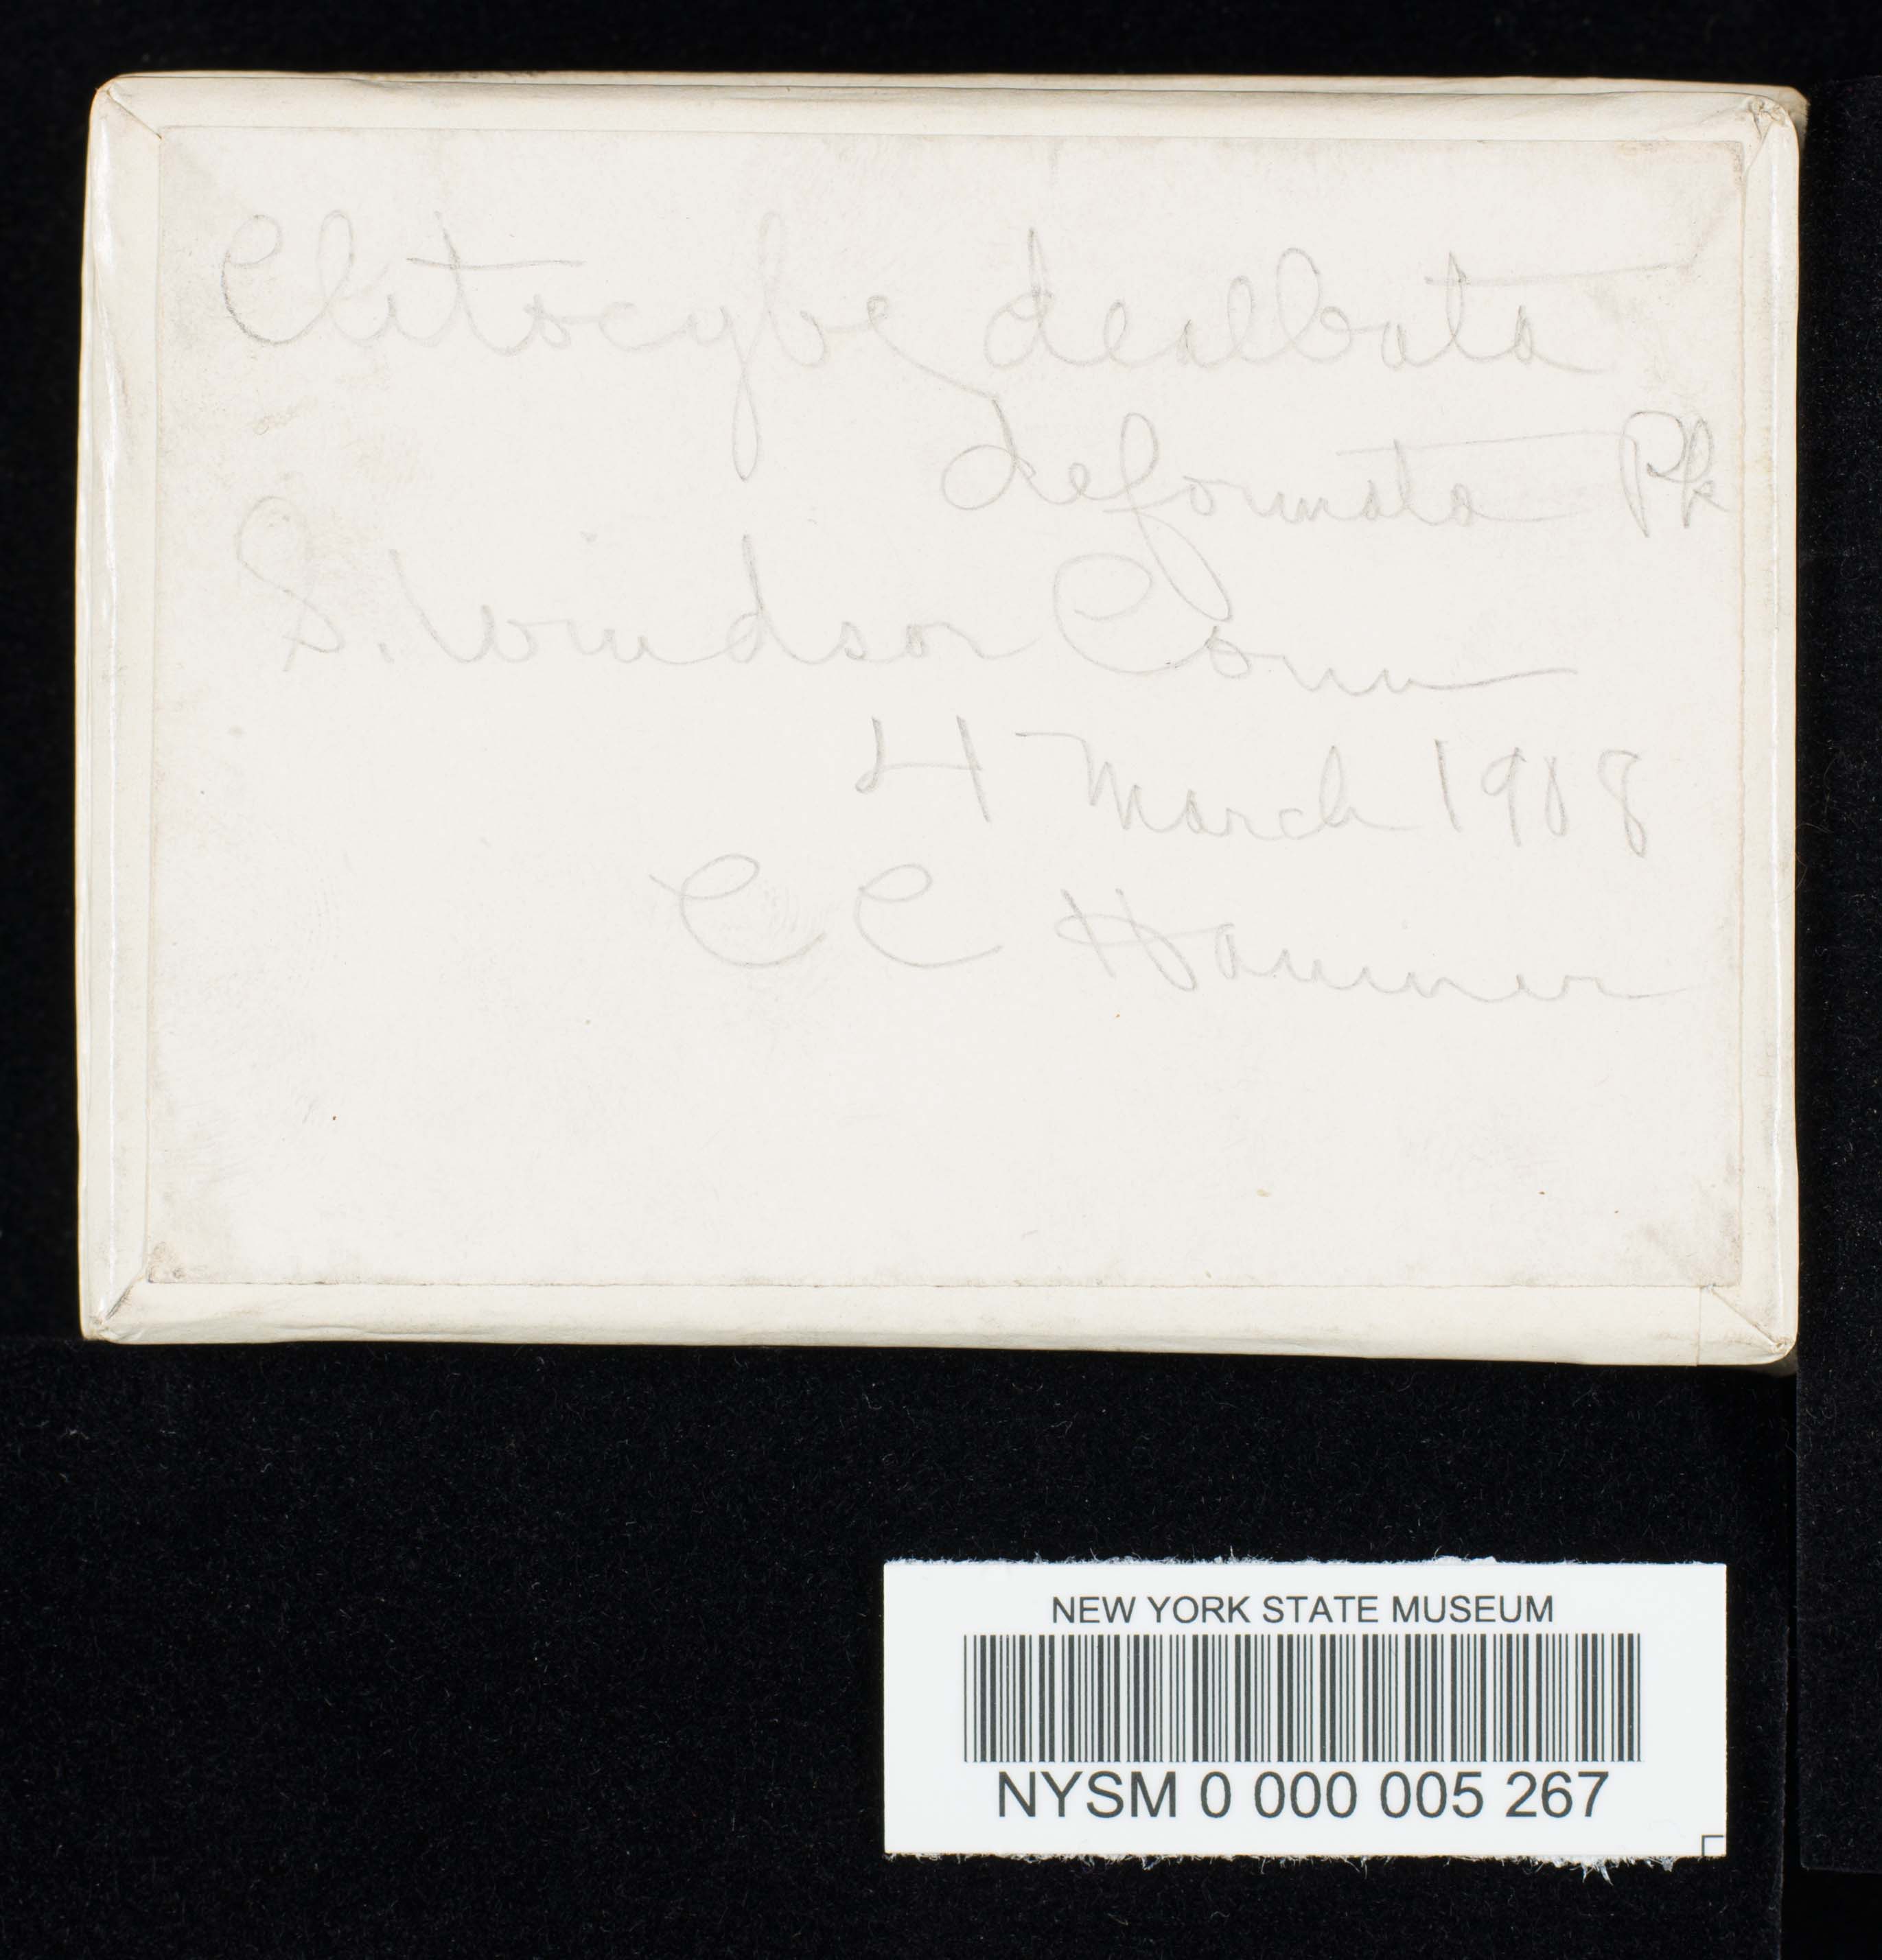 Clitocybe dealbata
deformata Pk
S. Windsor Conn
4 March 1908
C C Hanmer
NEW YORK STATE MUSEUM
NYSM 0 000 005 267